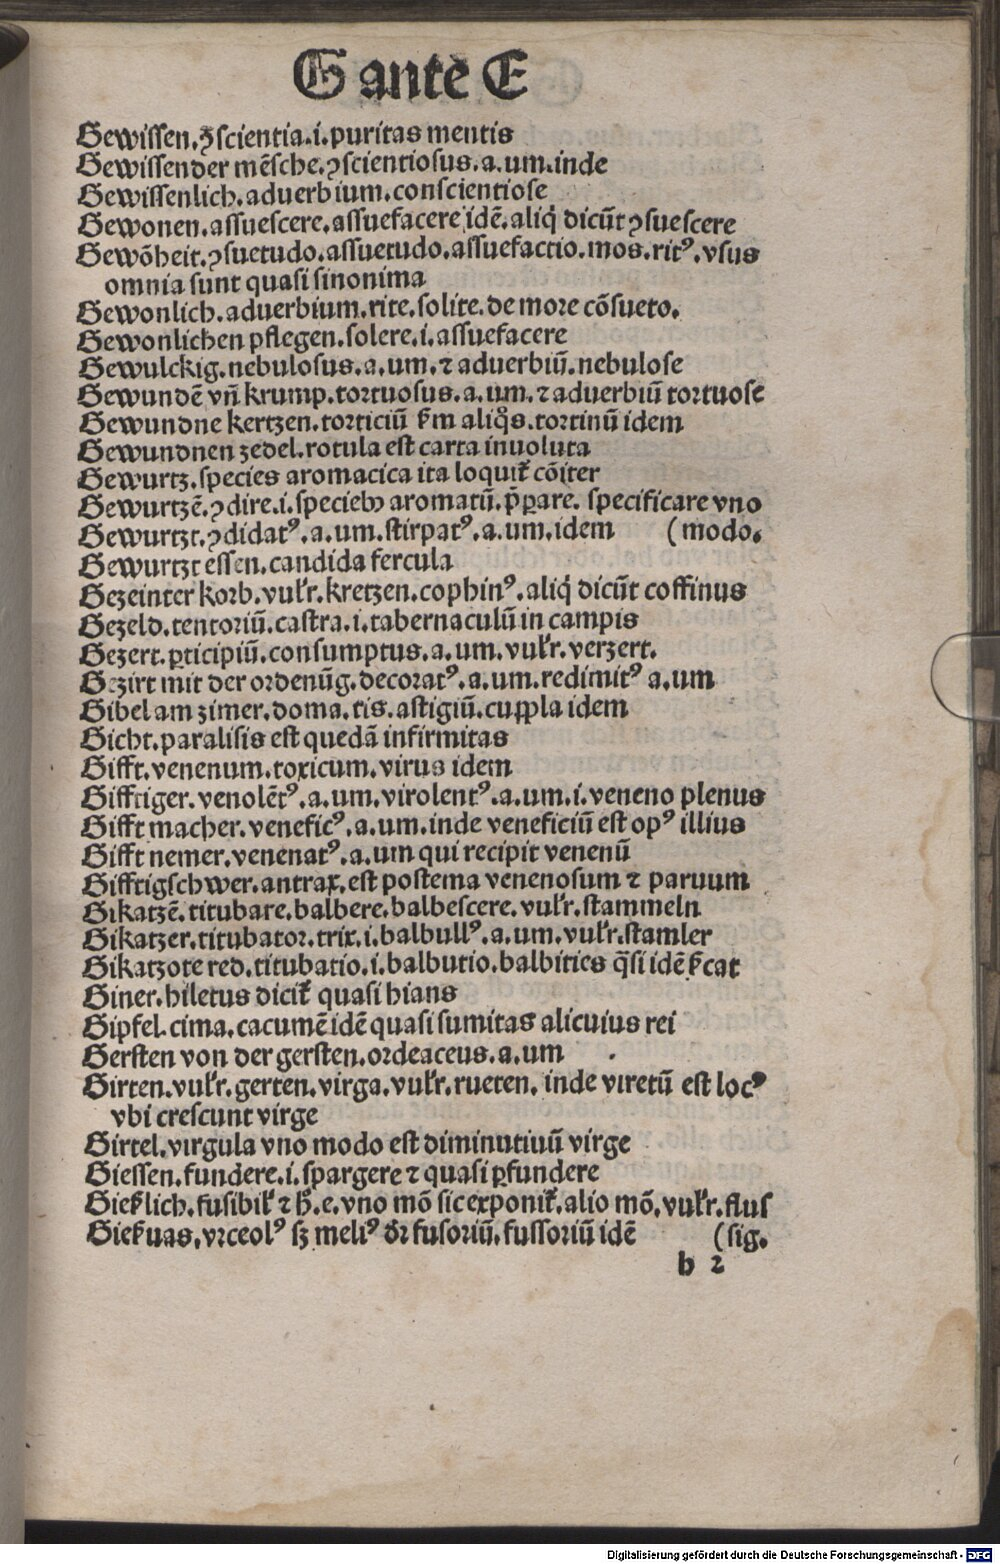 G ante E
Gewissen.ꝯscientia.i.puritas mentis
Gewissender mēsche.ꝯscientiosus.a.um.inde
Gewissenlich.aduerbium.conscientiose
Gewonen.assuescere.assuefacere idē.aliq̄ dicūt ꝯsuescere
Gewōheit.ꝯsuetudo.assuetudo.assuefactio.mos.ritꝰ.vsus
omnia sunt quasi sinonima
Gewonlich.aduerbium.rite.solite.de more cōsueto.
Gewonlichen pflegen.solere.i.assuefacere
Gewulckig.nebulosus.a.um.⁊ aduerbiū.nebulose
Gewundē vn̄ krump.tortuosus.a.um.⁊ aduerbiū tortuose
Gewundne kertzen.torticiū ẜm aliq̄s.tortinū idem
Gewundnen zedel.rotula est carta inuoluta
Gewurtz.species aromacica ita loquit᷑ cōiter
Gewurtzē.ꝯdire.i.specieb᷒ aromatū.p̄ꝑare. specificare vno
Gewurtzt.ꝯdidatꝰ.a.um.stirpatꝰ.a.um.idem (modo.
Gewurtzt essen.candida fercula
Gezeinter korb.vulr.kretzen.cophinꝰ.aliq̄ dicūt coffinus
Gezeld.tentoriū.castra.i.tabernaculū in campis
Gezert.ꝑticipiū.consumptus.a.um.vulr.verzert.
Gezirt mit der ordenūg.decoratꝰ.a.um.redimitꝰ a.um
Gibel am zimer.doma.tis.astigiū.cuppla idem
Gicht.paralisis est quedā infirmitas
Gifft.venenum.toxicum.virus idem
Gifftiger.venolētꝰ.a.um.virolentꝰ.a.um.i.veneno plenus
Gifft macher.veneficꝰ.a.um.inde veneficiū est opꝰ illius
Gifft nemer.venenatꝰ.a.um qui recipit venenū
Gifftigschwer.antrax.est postema venenosum ⁊ paruum
Gikatzē.titubare.balbere.balbescere.vulr.stammeln
Gikatzer.titubator.trix.i.balbullꝰ.a.um.vulr.stamler
Gikatzote red.titubatio.i.balbutio.balbities q̄si idē ẜcat
Giner.hiletus dicit᷑ quasi hians
Gipfel.cima.cacumē idē quasi sumitas alicuius rei
Gersten von der gersten.ordeaceus.a.um
Girten.vulr.gerten.virga.vulr.rueten. inde viretū est locꝰ
vbi crescunt virge
Girtel.virgula vno modo est diminutiuū virge
Giessen.fundere.i.spargere ⁊ quasi ꝑfundere
Gieẜlich.fusibil᷑ ⁊ h̄.e.vno mō sic exponit᷑.alio mō.vulr.flus
Gieẜuas.vrceolꝰ sꝫ meliꝰ dr̄ fusoriū.fussoriū idē (sig.
b 2
Digitalisierung gefördert durch die Deutsche Forschungsgemeinschaft - DFG